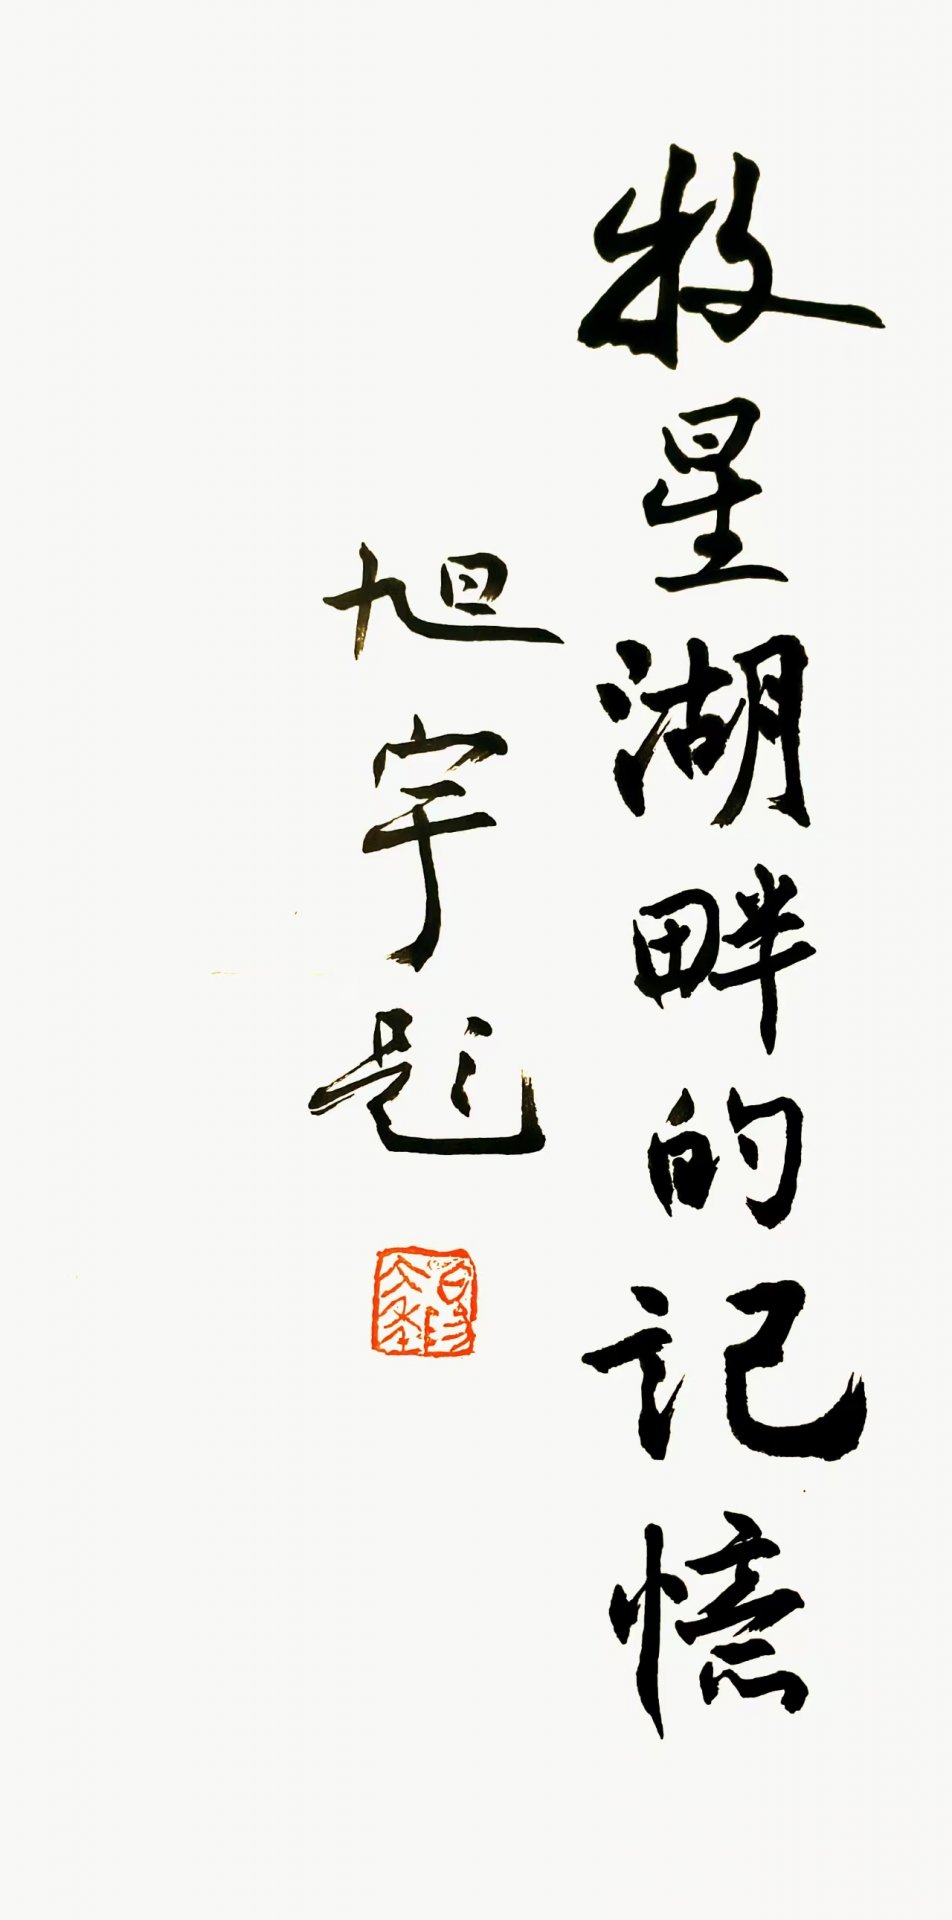 牧星湖畔的记忆
旭宇题